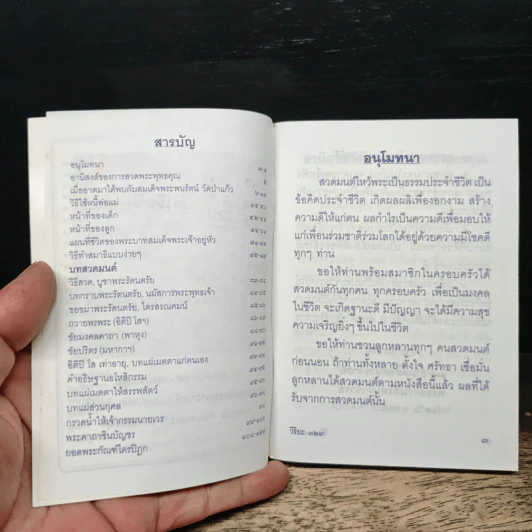 สารบัญ
อนุโมทนา
อานิสงส์ของการสวดพระพุทธคุณ
เมื่ออาตมาได้พบกับสมเด็จพระพนรัตน์ วัดป่าแก้ว
วิธีใช้หนี้พ่อแม่
หน้าที่ของเด็ก
หน้าที่ของลูก
แผนที่ชีวิตของพระบาทสมเด็จพระเจ้าอยู่หัว
วิธีทำสมาธิแบบง่ายๆ
บทสวดมนต์
วิธีสวด, บูชาพระรัตนตรัย
บทกราบพระรัตนตรัย, นมัสการพระพุทธเจ้า
ขอขมาพระรัตนตรัย, ไตรสรณคมน์
ถวายพรพระ (อิติปิ โสฯ)
ชัยมงคลคาถา (พาหุง)
ชัยปริตร (มหากาฯ)
อิติปิ โส เท่าอายุ, บทแผ่เมตตาแก่ตนเอง
คำอธิษฐานอโหสิกรรม
บทแผ่เมตตาให้สรรพสัตว์
บทแผ่ส่วนกุศล
กรวดน้ำให้เจ้ากรรมนายเวร
พระคาถาชินบัญชร
ยอดพระกัณฑ์ไตรปิฎก
อนุโมทนา
สวดมนต์ไหว้พระเป็นธรรมประจำชีวิต เป็น
ข้อคิดประจำชีวิต เกิดผลผลิเฟื่องอกงาม สร้าง
ความดีให้แก่ตน ผลกำไรเป็นความดีเพื่อมอบให้
แก่เพื่อนร่วมชาติร่วมโลกได้อยู่ด้วยความมีโชคดี
ทุกๆ ท่าน
ขอให้ท่านพร้อมสมาชิกในครอบครัวได้
สวดมนต์กันทุกคน ทุกครอบครัว เพื่อเป็นมงคล
ในชีวิต จะเกิดฐานะดี มีปัญญา จะได้มีความสุข
ความเจริญยิ่งๆ ขึ้นไปในชีวิต
ขอให้ท่านชวนลูกหลานทุกๆ คนสวดมนต์
ก่อนนอน ถ้าท่านทั้งหลาย ตั้งใจ ศรัทธา เชื่อมั่น
ลูกหลานได้สวดมนต์ตามหนังสือนี้แล้ว ผลที่ได้
รับจากการสวดมนต์นั้น